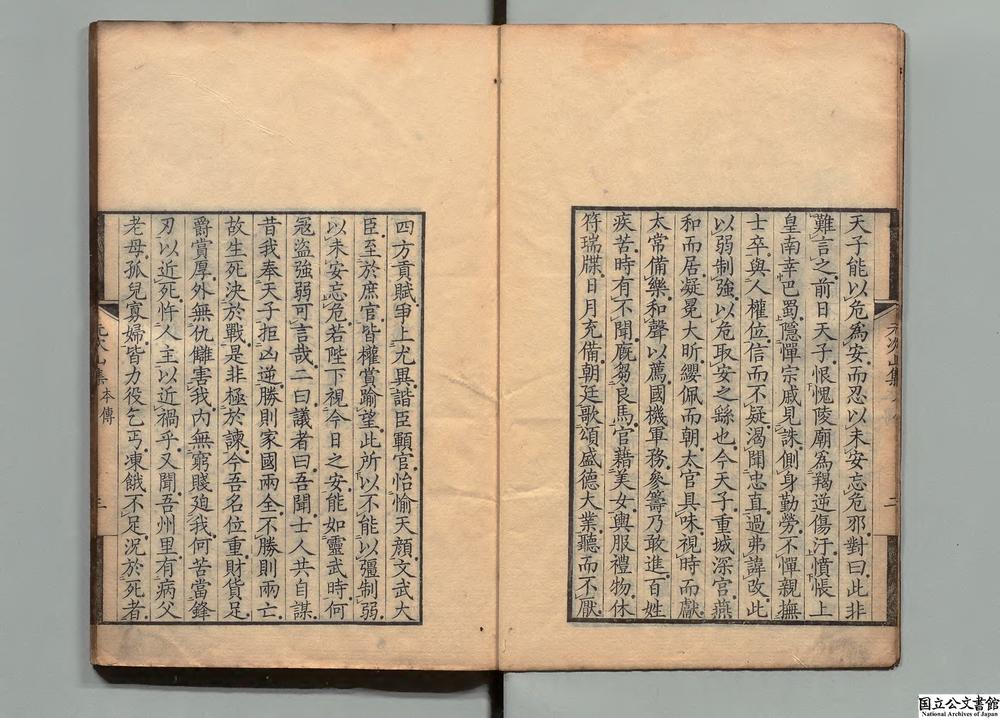 天子能以危爲安而忍以未安忘危邪對曰此非
難言之前日天子恨愧陵廟爲羯逆傷汙憤悵上
皇南幸巴蜀隱憚宗戚見誅側身勤勞不憚親撫
士卒與人權位信而不疑渴聞忠直過弗諱改此
以弱制強以危取安之繇也今天子重城深宮燕
和而居凝冕大昕纓佩而朝太官具味視時而獻
太常備樂和聲以薦國機軍務參籌乃敢進百姓
疾苦時有不聞廐芻良馬宮藉美女輿服禮物休
符瑞牒日月充備朝廷歌頌盛德大業聽而不厭
元次山集
二
四方貢賦爭上尤異諧臣顯官怡愉天顔文武大
臣至於庶官皆權賞踰望此所以不能以彊制弱
以未安忘危若陛下視今日之安能如靈武時何
冦盜強弱可言哉二曰議者曰吾聞士人共自謀
昔我奉天子拒凶逆勝則家國兩全不勝則兩亡
故生死決於戰是非極於諫今吾名位重財貨足
爵賞厚外無仇讎害我內無窮賤迫我何苦當鋒
刃以近死忤人主以近禍乎又聞吾州里有病父
老母孤兒寡婦皆力役乞丐凍餓不足況於死者
元次山集 本傳
三
国立公文書館
National Archives of Japan